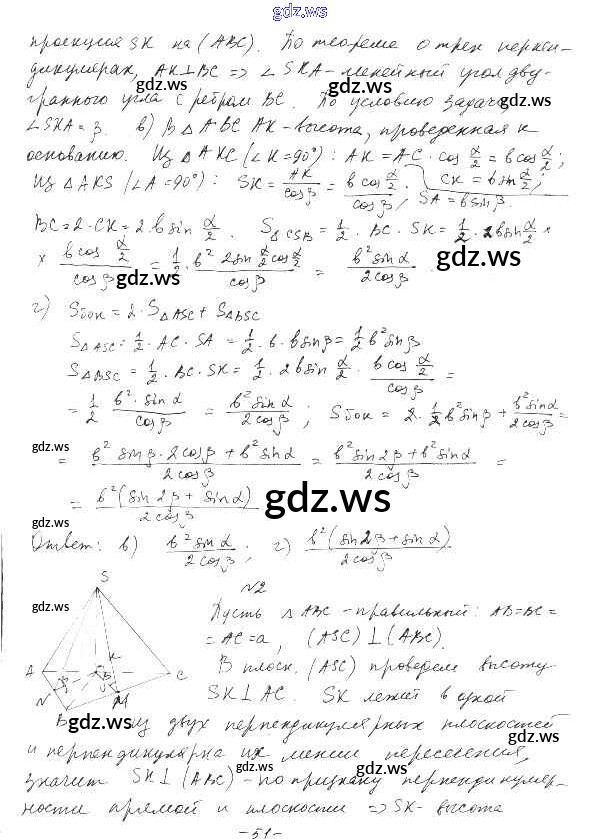 gdz.ws
проекция SK на (ABC). По теореме о трех перпен-
дикулярах, AK⊥BC ⇒ ∠SKA - линейный угол дву-
гранного угла с ребром BC. По условию задачи,
∠SKA=β. в) В △ABC AK - высота, проведенная к
основанию. Из △AKC (∠K=90°): AK = AC · cos α/2 = b cos α/2;
Из △AKS (∠A=90°): SK = AK/cosβ = b cos α/2 / cosβ, CK = b sin α/2; SA = b sinβ.
BC = 2 · CK = 2 · b sin α/2. S△CSB = 1/2 · BC · SK = 1/2 · 2b sin α/2 ×
× b cos α/2 / cosβ = 1/2 · b² 2 sin α/2 cos α/2 / cosβ = b² sinα / 2cosβ.
г) Sбок = 2 · S△ASC + S△BSC
S△ASC = 1/2 · AC · SA = 1/2 · b · b sinβ = 1/2 b² sinβ
S△BSC = 1/2 · BC · SK = 1/2 · 2b sin α/2 · b cos α/2 / cosβ =
= 1/2 b² · sinα / cosβ = b² sinα / 2cosβ; Sбок = 2 · 1/2 b² sinβ + b² sinα / 2cosβ =
= b² sinβ · 2cosβ + b² sinα / 2cosβ = b² sin2β + b² sinα / 2cosβ =
= b² (sin2β + sinα) / 2cosβ
Ответ: в) b² sinα / 2cosβ; г) b² (sin2β + sinα) / 2cosβ
N2
Пусть △ABC - правильный: AB=BC=
= AC=a, (ASC)⊥(ABC).
В плоск. (ASC) проведем высоту
SK⊥AC. SK лежит в одной
из двух перпендикулярных плоскостей
и перпендикулярна их линии пересечения,
значит SK⊥(ABC) - по признаку перпендикуляр-
ности прямой и плоскости ⇒ SK - высота
S
A
C
N
M
B
-51-
gdz.ws
gdz.ws
gdz.ws
gdz.ws
gdz.ws
gdz.ws
gdz.ws
gdz.ws
gdz.ws
gdz.ws
gdz.ws
gdz.ws
gdz.ws
gdz.ws